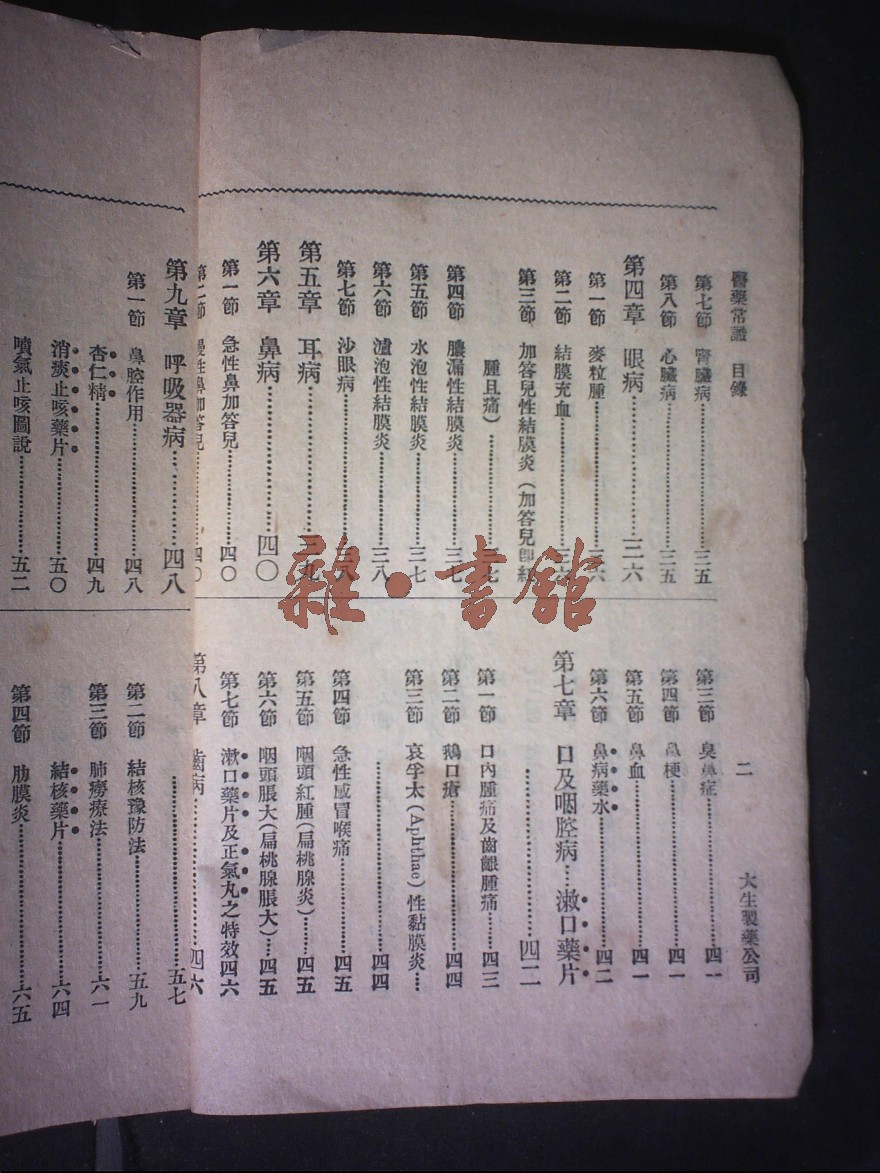 醫藥常識 目錄 二 大生製藥公司
第七節 腎臟病……三五
第八節 心臟病……三五
第四章 眼病……三六
第一節 麥粒腫……三六
第二節 結膜充血……三六
第三節 加答兒性結膜炎（加答兒卽紅
腫且痛）……三七
第四節 膿漏性結膜炎……三七
第五節 水泡性結膜炎……三七
第六節 濾泡性結膜炎……三八
第七節 沙眼病……三八
第五章 耳病……三九
第六章 鼻病……四〇
第一節 急性鼻加答兒……四〇
第二節 慢性鼻加答兒……四〇
第三節 臭鼻症……四一
第四節 鼻梗……四一
第五節 鼻血……四一
第六節 鼻病藥水……四二
第七章 口及咽腔病…漱口藥片
……四二
第一節 口內腫痛及齒齦腫痛……四三
第二節 鵝口瘡……四四
第三節 哀孚太（Aphthae）性黏膜炎……
……四四
第四節 急性感冒喉痛……四五
第五節 咽頭紅腫（扁桃腺炎）……四五
第六節 咽頭脹大（扁桃腺脹大）…四五
第七節 漱口藥片及正氣丸之特效四六
第八章 齒病……四六
第九章 呼吸器病……四八
第一節 鼻腔作用……四八
杏仁精……四九
消痰止咳藥片……五〇
噴氣止咳圖說……五二
……五七
第二節 結核豫防法……五九
第三節 肺癆療法……六一
結核藥片……六四
第四節 肋膜炎……六五
雜·書館